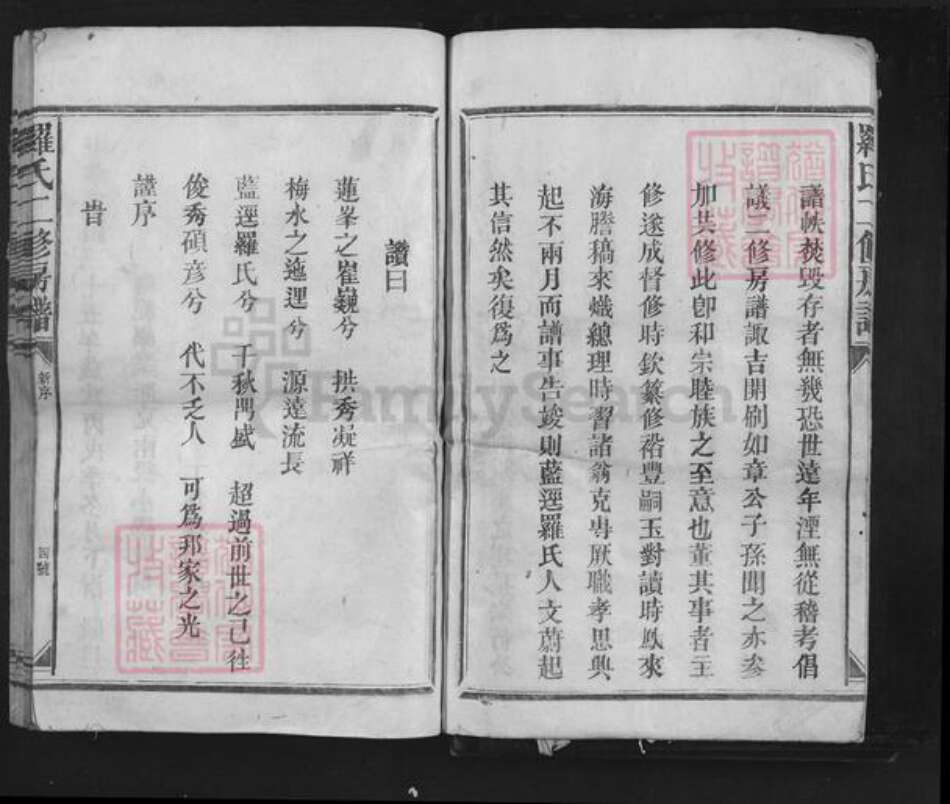 羅氏二修房譜
譜帙焚毀存者無幾恐世遠年湮無從稽考倡
議二修房譜諏吉開刷如章公子孫聞之亦叅
加共修此卽和宗睦族之至意也董其事者主
修遂成督修時欽纂修裕豐嗣玉對讀時鳳來
海謄稿來熾總理時習諸翁克専厥職孝思興
起不兩月而譜事告竣則藍逕羅氏人文蔚起
其信然矣復爲之
讚曰
蓮峯之崔巍兮 拱秀凝祥
梅水之迤逕兮 源遠流長
藍逕羅氏兮 千秋鬥盛 超過前世之已往
俊秀碩彦兮 代不乏人 可爲邦家之光
謹序
旹
羅氏二修房譜 新序 四號
FamilySearch